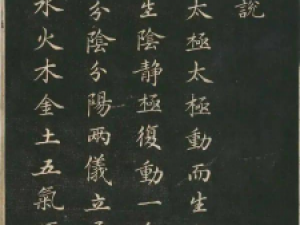 說
太極太極動而生
生陰靜極復動一
分陰分陽兩儀立
水火木金土五氣